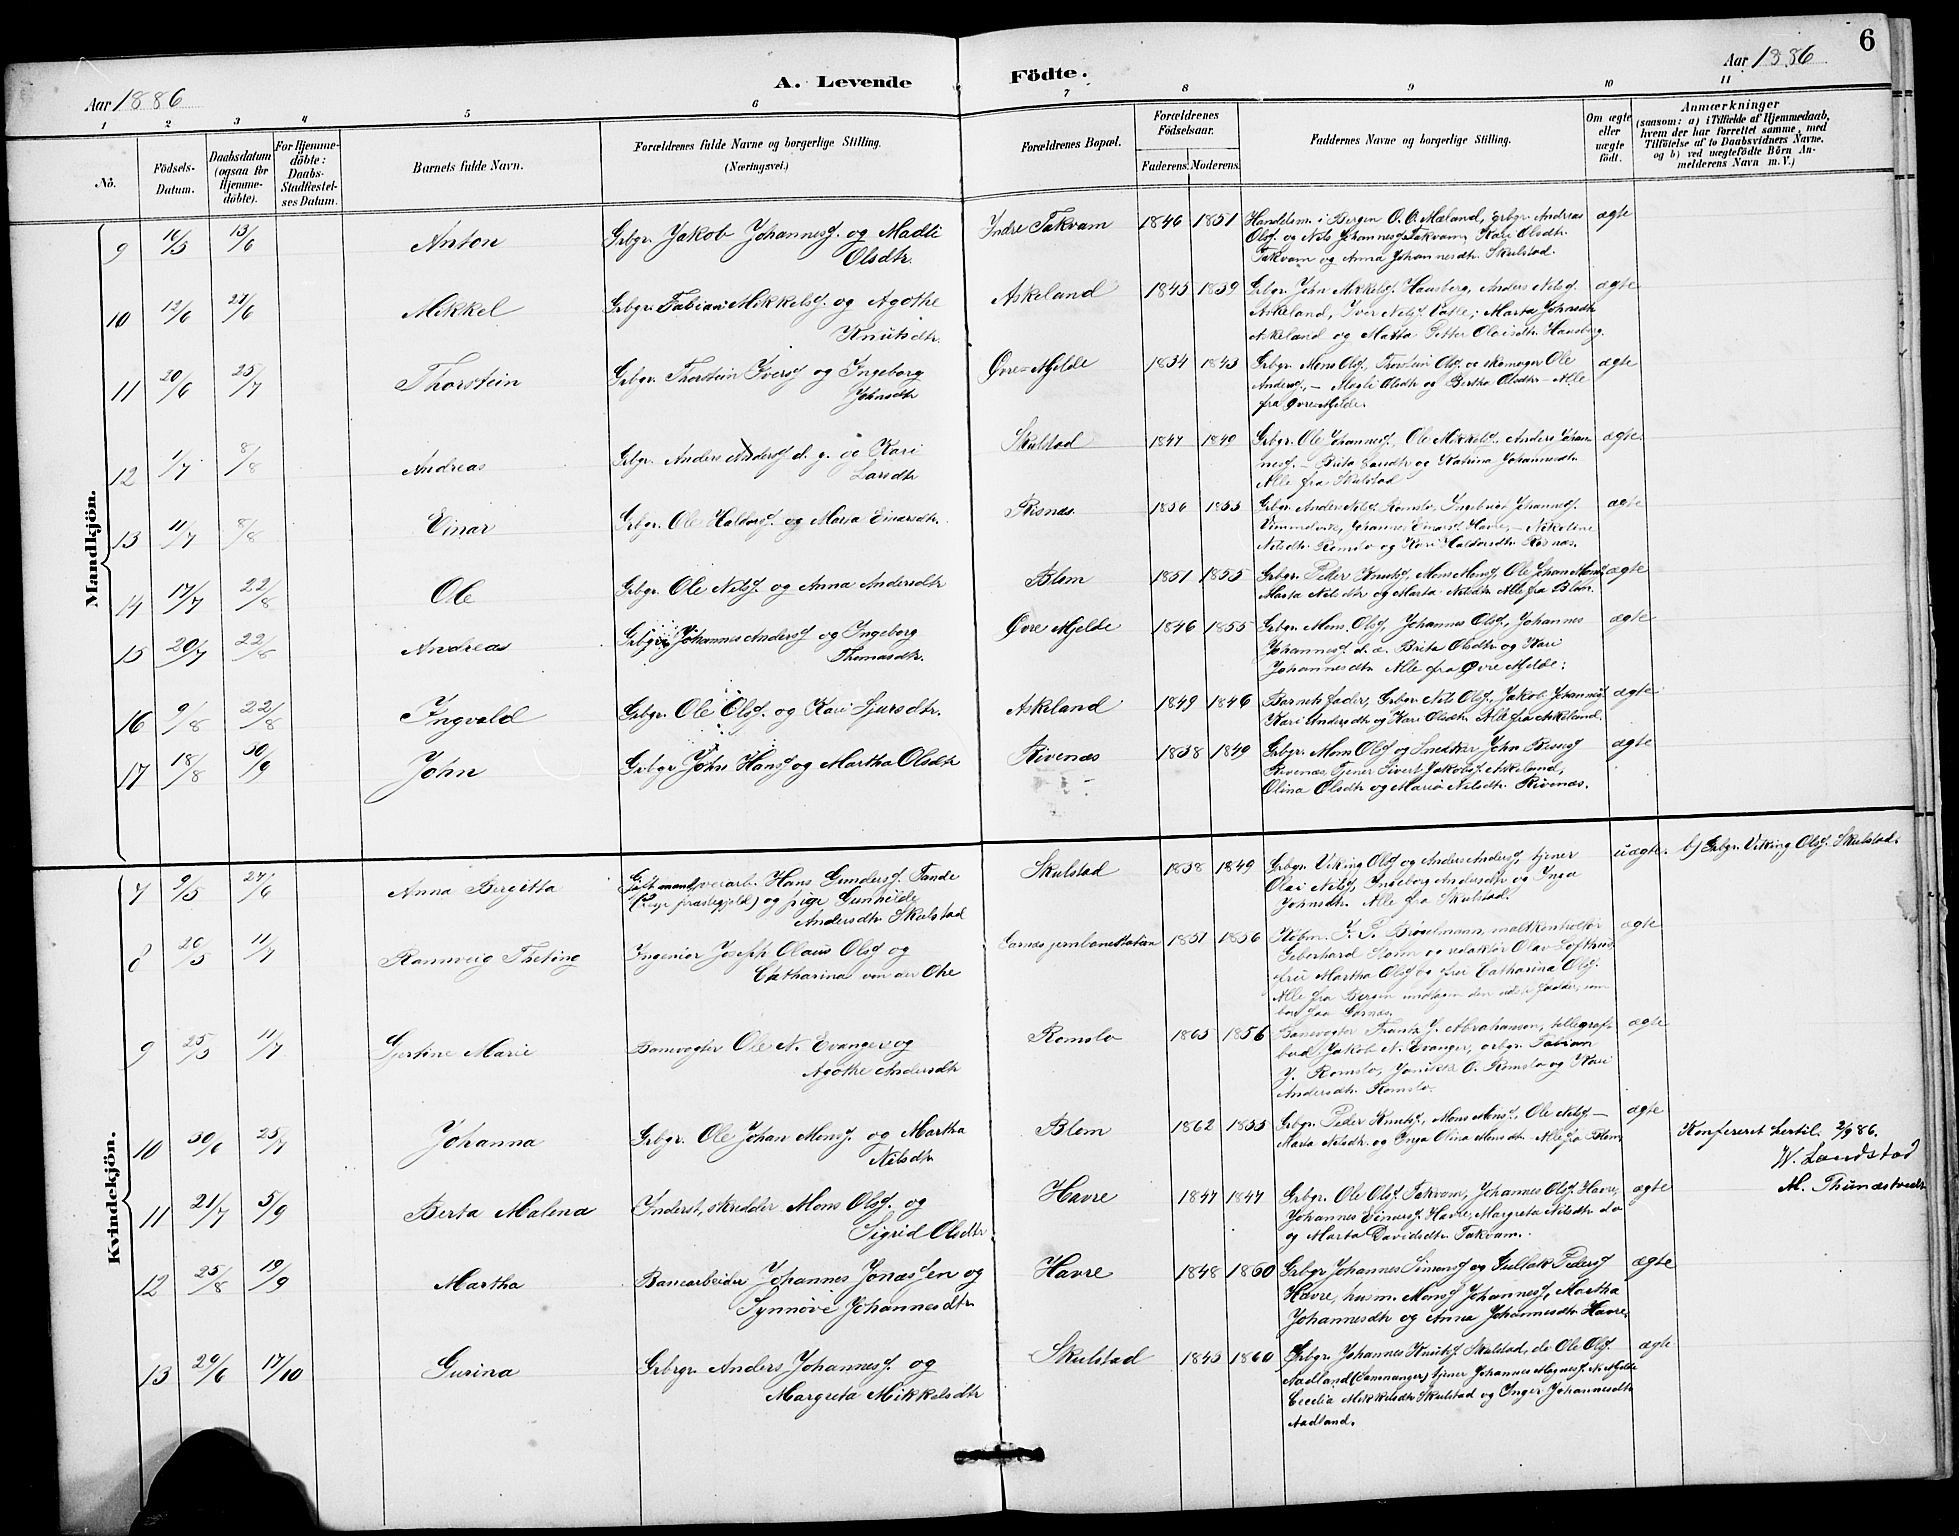 6
Aar 1886
A. Levende Födte.
Aar 1886
1 2 3 4 5 6 7 8 9 10 11
No.
Födsels-Datum.
Daabsdatum (ogsaa for Hjemme-döbte).
For Hjemme-döbte: Daabs-Stadfæstel-ses Datum.
Barnets fulde Navn.
Forældrenes fulde Navne og borgerlige Stilling.
(Næringsvei.)
Forældrenes Bopæl.
Forældrenes Födselsaar.
Faderens. Moderens.
Faddernes Navne og borgerlige Stilling.
Om ægte eller uægte födt.
Anmærkninger
(saasom: a) i Tilfælde af Hjemmedaab,
hvem der har forrettet samme, med
Tilföielse af to Daabsvidners Navne,
og b) ved uægtefödte Börn An-
melderens Navn m. V.)
Mandkjön.
9 16/5 13/6 Anton Grbgr. Jakob Johannesf. og Madli Olsdtr. Indre Takvam 1846 1851 Handelsm. i Bergen O. O. Mæland, grbgr. Andreas ægte
Olsf. og Nils Johannesf. Takvam, Kari Olsdtr.
Takvam og Anna Johannesdtr. Skulstad.
10 12/6 27/6 Mikkel Grbgr. Fabian Mikkelsf. og Agothe Knutsdtr. Askeland 1845 1859 Grbgr. John Mikkelsf. Hausberg, Anders Nilsf. ægte
Askeland, Iver Nilsf. Vatle, Marta Johnsdtr.
Askeland og Olaisdtr. Hausberg.
11 20/6 25/7 Thorstein Grbgr. Thorstein Iversf. og Ingeborg Johnsdtr. Øvre-Mjelde 1834 1843 Grbgr. Mons Olsf., Torstein Olsf. og skomager Ole ægte
Andersf., - Magli Olsdtr og Bertha Olsdtr - Alle
fra Øvre-Mjelde.
12 1/7 8/8 Andreas Grbgr. Anders Andersf. d. y. og Kari Larsdtr Skulstad 1847 1840 Grbgr. Ole Johannesf., Ole Mikkelsf. Anders Johan- ægte
nesf. - Brita Larsdtr og Katrina Johannesdtr.
Alle fra Skulstad
13 11/7 8/8 Einar Grbgr. Ole Haldorsf. og Maria Einarsdtr. Risnæs. 1856 1855 Grbgr. Anders Nilsf. Romslo, Johannesf. ægte
Johannes Einarsf. Havre, - Nikoline
Nilsdtr. Romslo og Kari Haldorsdtr. Risnæs.
14 17/7 22/8 Ole Grbgr. Ole Nilsf. og Anna Andersdtr Blom 1851 1855 Grbgr. Peder Knutsf., Mons Monsf., Ole Johan Monsf. ægte
Marta Nilsdtr og Marta Nilsdtr Alle fra Blom.
15 20/7 22/8 Andreas Grbgr. Johannes Andersf og Ingeborg Thomasdtr. Øvre Mjelde 1846 1855 Grbgr. Mons Olsf., Johannes Olsf., Johannes ægte
Johannesf. d. æ. Brita Olsdtr og Kari
Johannesdtr Alle fra Øvre Mjelde.
16 9/8 22/8 Ingvald Grbgr. Ole Olsf. og Kari Sjursdtr. Askeland 1849 1846 Barnets fader, Grbgr. Nils Olsf., Jakob Johannesf. ægte
Kari Andersdtr og Kari Olsdtr. Alle fra Askeland.
17 18/8 30/9 John Grbgr John Hansf og Martha Olsdtr Rivenæs 1838 1849 Grbgr. Mons Olsf og Snekker John ægte
Rivenæs, Tjener Sivert Jakobsf. Askeland,
Olina Olsdtr og Mari Nilsdtr. Rivenæs.
Kvindekjön.
7 9/5 27/6 Anna Birgitta Hans Gundersf. Tande
præstegjeld) og pige Gunhilde
Andersdtr Skulstad Skulstad 1858 1849 Grbgr. Viking Olsf og Anders Andersf, tjener uægte. b) Grbgr. Viking Olsf. Skulstad.
Olai Nilsf, Ingeborg Andersdtr og Inga
Johnsdtr. Alle fra Skulstad.
8 20/5 11/7 Rannveig Theting Ingeniör Joseph Olaus Olsf og
Catharina von der Ohe Garnæs jernbanestation 1851 1856 Kjøbm. J. P. Brøgelmann, maltkontrollør ægte
Geberhard og redaktør Olav Lofthus
frü Martha Olsf og frü Catharina Olsf.
Alle fra Bergen
9 25/5 11/7 Gjertine Marie Banevogter Ole N. Evanger og
Agothe Andersdtr Romslo 1865 1856 Banevogter Frantz J. Abrahamsen, tellegraf- ægte
bud Jakob N. Evanger, grbgr. Fabian
J. Romslo, O. Romslo og Kari
Andersdtr. Romslo.
10 30/6 25/7 Johanna Grbgr. Ole Johan Monsf. og Martha
Nilsdtr Blom 1862 1855 Grbgr. Peder Knutsf., Mons Monsf., Ole Nilsf. - ægte
Marta Nilsdtr. og Inga Olina Monsdtr. Alle fra Blom
Konfereret hertil 2/9 86.
W. Landstad
M. Thunæstvedt
11 21/7 5/9 Berta Malena Inderst, skrædder Mons Olsf. og
Sigrid Olsdtr Havre 1847 1847 Grbgr. Ole Olsf. Takvam, Johannes Olsf. Havre, ægte
Johannes Einarsf. Havre, Margreta Nilsdtr. do
og Marta Davidsdtr. Takvam.
12 25/8 19/9 Martha Banearbeider Johannes Jonassen og
Synnøve Johannesdtr. Havre 1848 1860 Grbgr Johannes Simonsf og Gullak Pedersf ægte
Havre, husm. Mons Johannesf, Martha
Johannesdtr og Anna Johannesdtr Havre.
13 29/6 17/10 Gurina Grbrgr. Anders Johannesf. og
Margreta Mikkelsdtr Skulstad 1845 1860 Grbgr. Johannes Knutsf. Skulstad, do Ole Olsf. ægte
Aadland (Samnanger) tjener Johannes Magnesf. N. Mjelde
Cecelia Mikkelsdtr Skulstad og Inger Johannesdtr
Aadland.